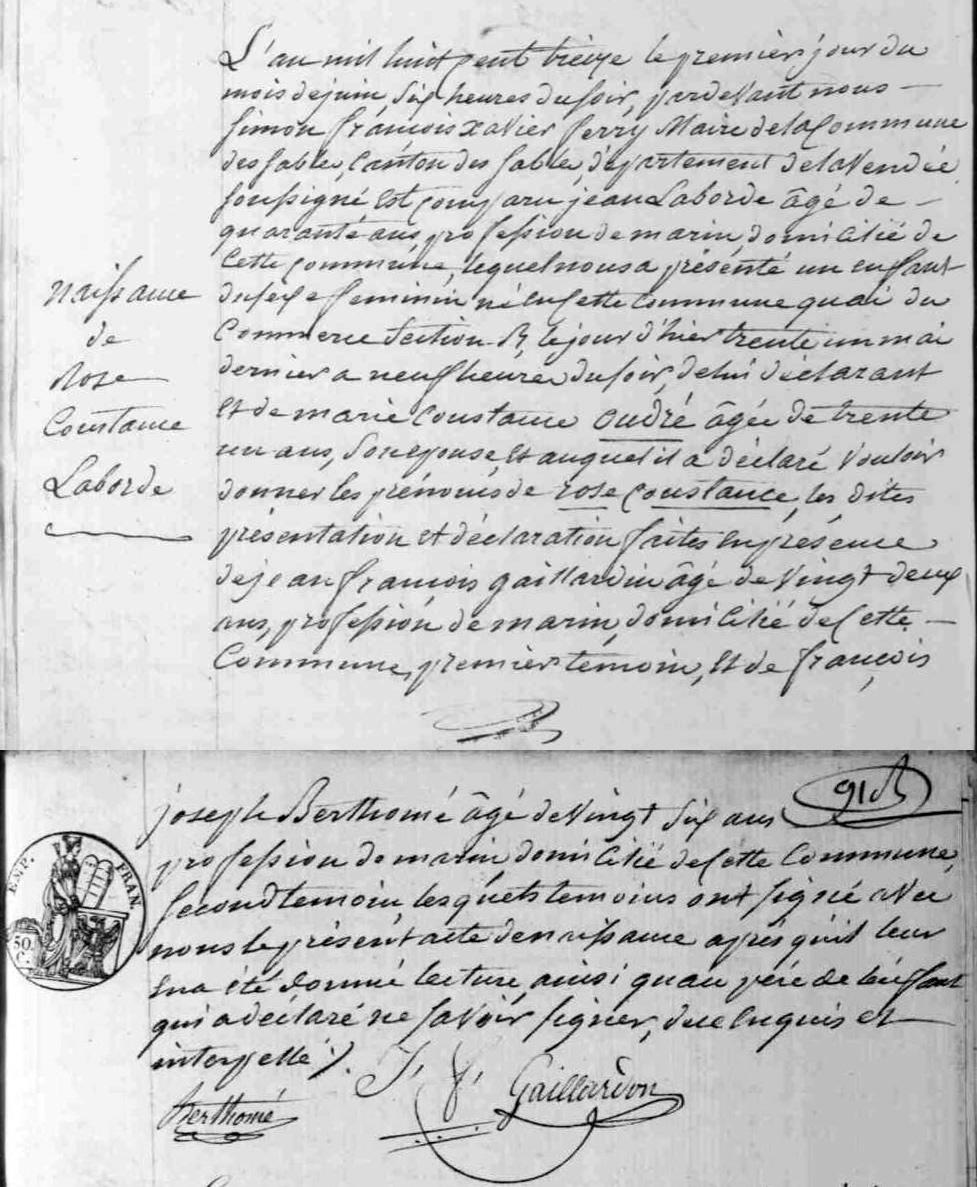 L'an mil huit cent treize le premier jour du
mois de juin, six heures du soir, pardevant nous —
Simon françois xavier ferry Maire de la Commune
des sables, Canton des sables, département de la Vendée
soussigné est comparu jean Laborde âgé de —
quarante ans, profession de marin, domicilié de
Cette commune, lequel nous a présenté un enfant
du sexe feminin né en Cette Commune quai du
Commerce Section B, le jour d'hier trente un mai
dernier a neuf heures du soir, de lui déclarant
et de marie Constance Oudré âgée de trente
un ans, son épouse, et auquel il a déclaré Vouloir
donner les prénoms de rose Constance, les dites
présentation et déclaration faites en présence
de jean françois gaillardin âgé de Vingt deux
ans, profession de marin, domicilié de Cette —
Commune, premier temoin, et de françois
Naissance
de
Rose
Constance
Laborde
91
joseph Berthomé âgé de Vingt Six ans
profession de marin domicilié de Cette Commune
second temoin, lesquels temoins ont signé avec
nous le présent acte de naissance après quil leur
en a été donné lecture, ainsi quau père de lenfant
qui a déclaré ne savoir signer, de ce enquis et
interpellé ./.
Berthomé
J. f. Gaillardon
EMP. FRAN.
50.
C.